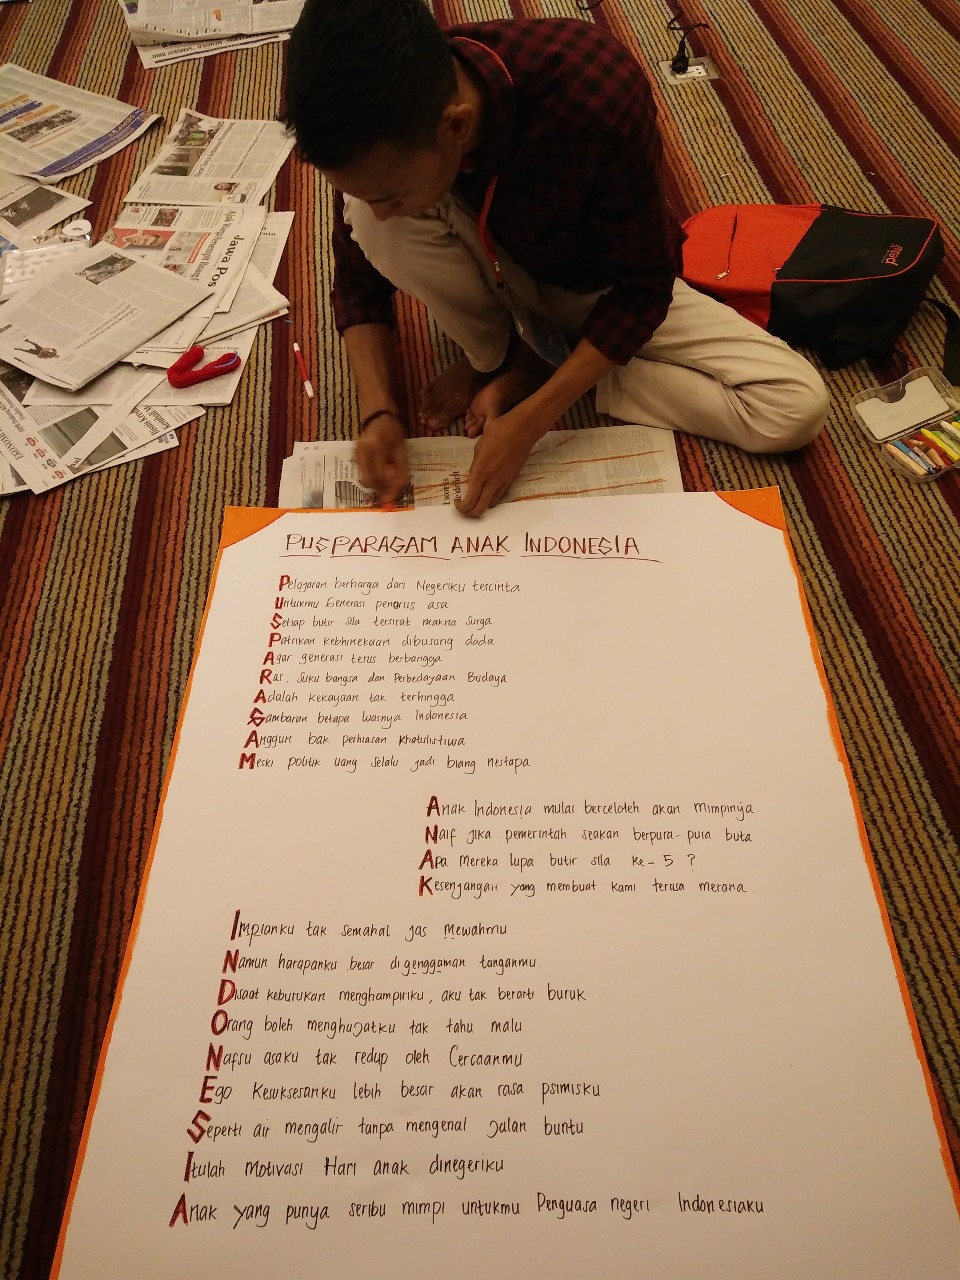 Jawa Pos
PUSPARAGAM ANAK INDONESIA
Pelajaran berharga dari Negeriku tercinta
Untukmu Generasi penerus asa
Setiap butir sila tersirat makna surga
Patrikan kebhinekaan dibusung dada
Agar generasi terus berbangga
Ras, suku bangsa dan Perbedayaan Budaya
Adalah kekayaan tak terhingga
Gambaran betapa luasnya Indonesia
Anggun bak perhiasan khatulistiwa
Meski politik uang selalu jadi biang nestapa
Anak Indonesia mulai berceloteh akan mimpinya
Naif jika pemerintah seakan berpura-pura buta
Apa Mereka lupa butir sila ke-5 ?
Kesenjangan yang membuat kami terasa merana.
Impianku tak semahal jas Mewahmu
Namun harapanku besar digenggaman tanganmu.
Disaat keburukan menghampiriku, aku tak berarti buruk
Orang boleh menghujatku tak tahu malu
Nafsu asaku tak redup oleh Cercaanmu
Ego Kesuksesanku lebih besar akan rasa psimisku
Seperti air mengalir tanpa mengenal jalan buntu
Itulah Motivasi Hari anak dinegeriku
Anak yang punya seribu mimpi untukmu Penguasa negeri Indonesiaku